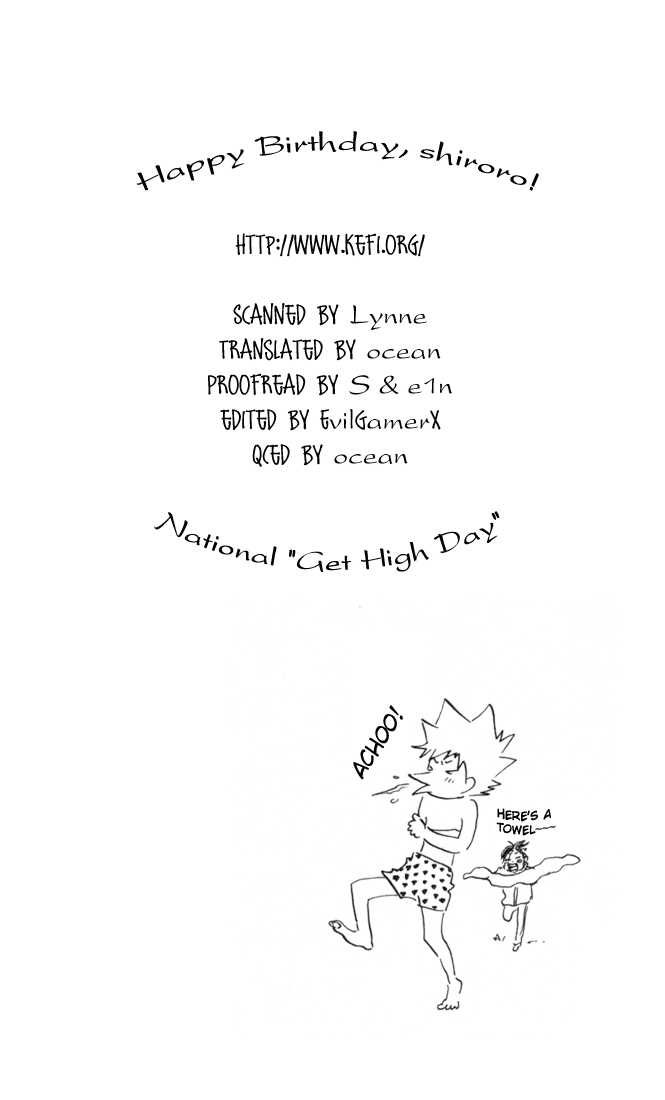 Happy Birthday, shiroro!
HTTP://WWW.KEFI.ORG/
SCANNED BY Lynne
TRANSLATED BY ocean
PROOFREAD BY S & e1n
EDITED BY EvilGamerX
QCED BY ocean
National "Get High Day"
ACHOO!
HERE'S A
TOWEL~~